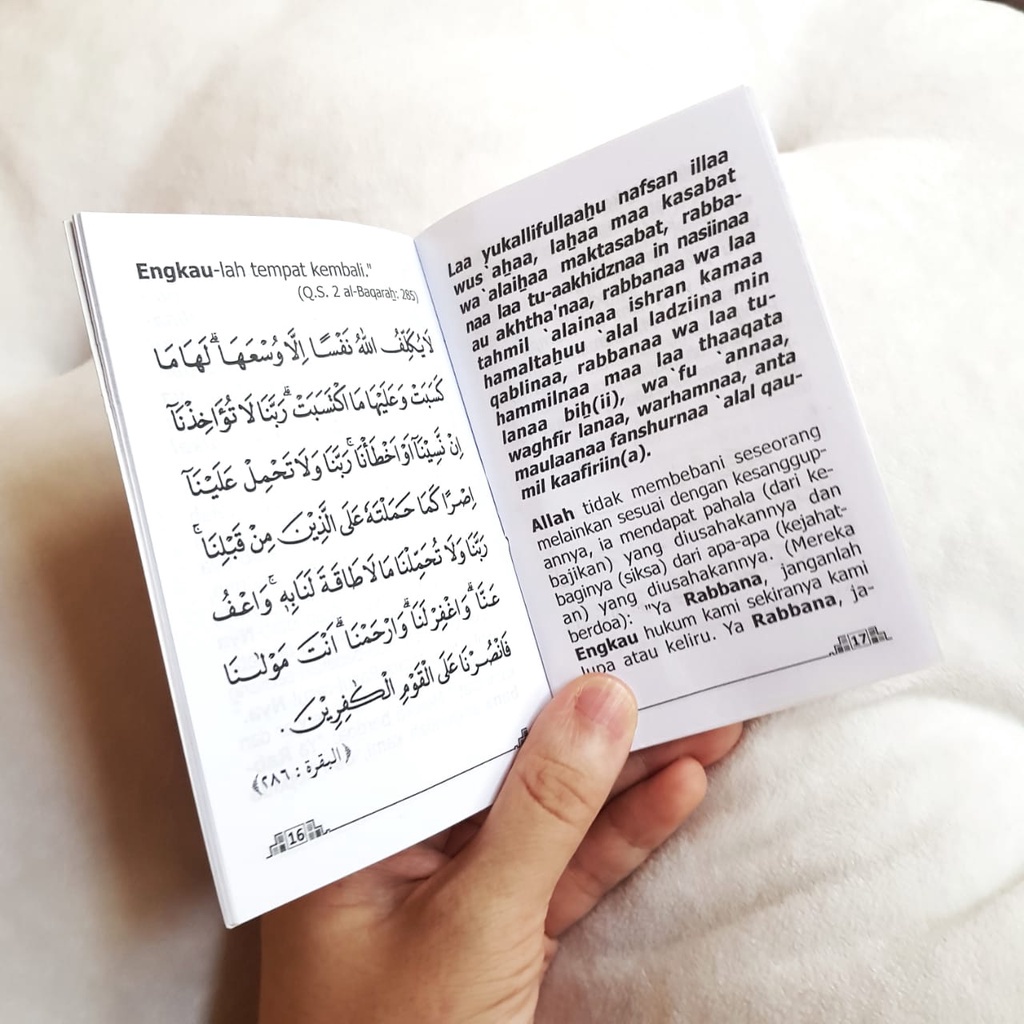 Engkau-lah tempat kembali."
(Q.S. 2 al-Baqaraẖ: 285)
لَا يُكَلِّفُ اللهُ نَفْسًا إِلَّا وُسْعَهَا ۗ لَهَا مَا
كَسَبَتْ وَعَلَيْهَا مَا اكْتَسَبَتْ ۗ رَبَّنَا لَا تُؤَاخِذْنَآ
إِنْ نَّسِيْنَآ أَوْ أَخْطَأْنَا ۚ رَبَّنَا وَلَا تَحْمِلْ عَلَيْنَآ
إِصْرًا كَمَا حَمَلْتَهُ عَلَى الَّذِيْنَ مِنْ قَبْلِنَا ۚ
رَبَّنَا وَلَا تُحَمِّلْنَا مَا لَا طَاقَةَ لَنَا بِهٖ ۚ وَاعْفُ
عَنَّا ۗ وَاغْفِرْ لَنَا ۗ وَارْحَمْنَا ۗ أَنْتَ مَوْلٰىنَا
فَانْصُرْنَا عَلَى الْقَوْمِ الْكٰفِرِيْنَ .
﴿البقرة : ٢٨٦﴾
16
Laa yukallifullaaẖu nafsan illaa
wus`aẖaa, laẖaa maa kasabat
wa`alaiẖaa maktasabat, rabba-
naa laa tu-aakhidznaa in nasiinaa
au akhtha'naa, rabbanaa wa laa
tahmil `alainaa ishran kamaa
hamaltaẖuu `alal ladziina min
qablinaa, rabbanaa wa laa tu-
hammilnaa maa laa thaaqata
lanaa biẖ(ii), wa`fu `annaa,
waghfir lanaa, warhamnaa, anta
maulaanaa fanshurnaa `alal qau-
mil kaafiriin(a).
Allah tidak membebani seseorang
melainkan sesuai dengan kesanggup-
annya, ia mendapat pahala (dari ke-
bajikan) yang diusahakannya dan
baginya (siksa) dari apa-apa (kejahat-
an) yang diusahakannya. (Mereka
berdoa): "Ya Rabbana, janganlah
Engkau hukum kami sekiranya kami
lupa atau keliru. Ya Rabbana, ja-
17